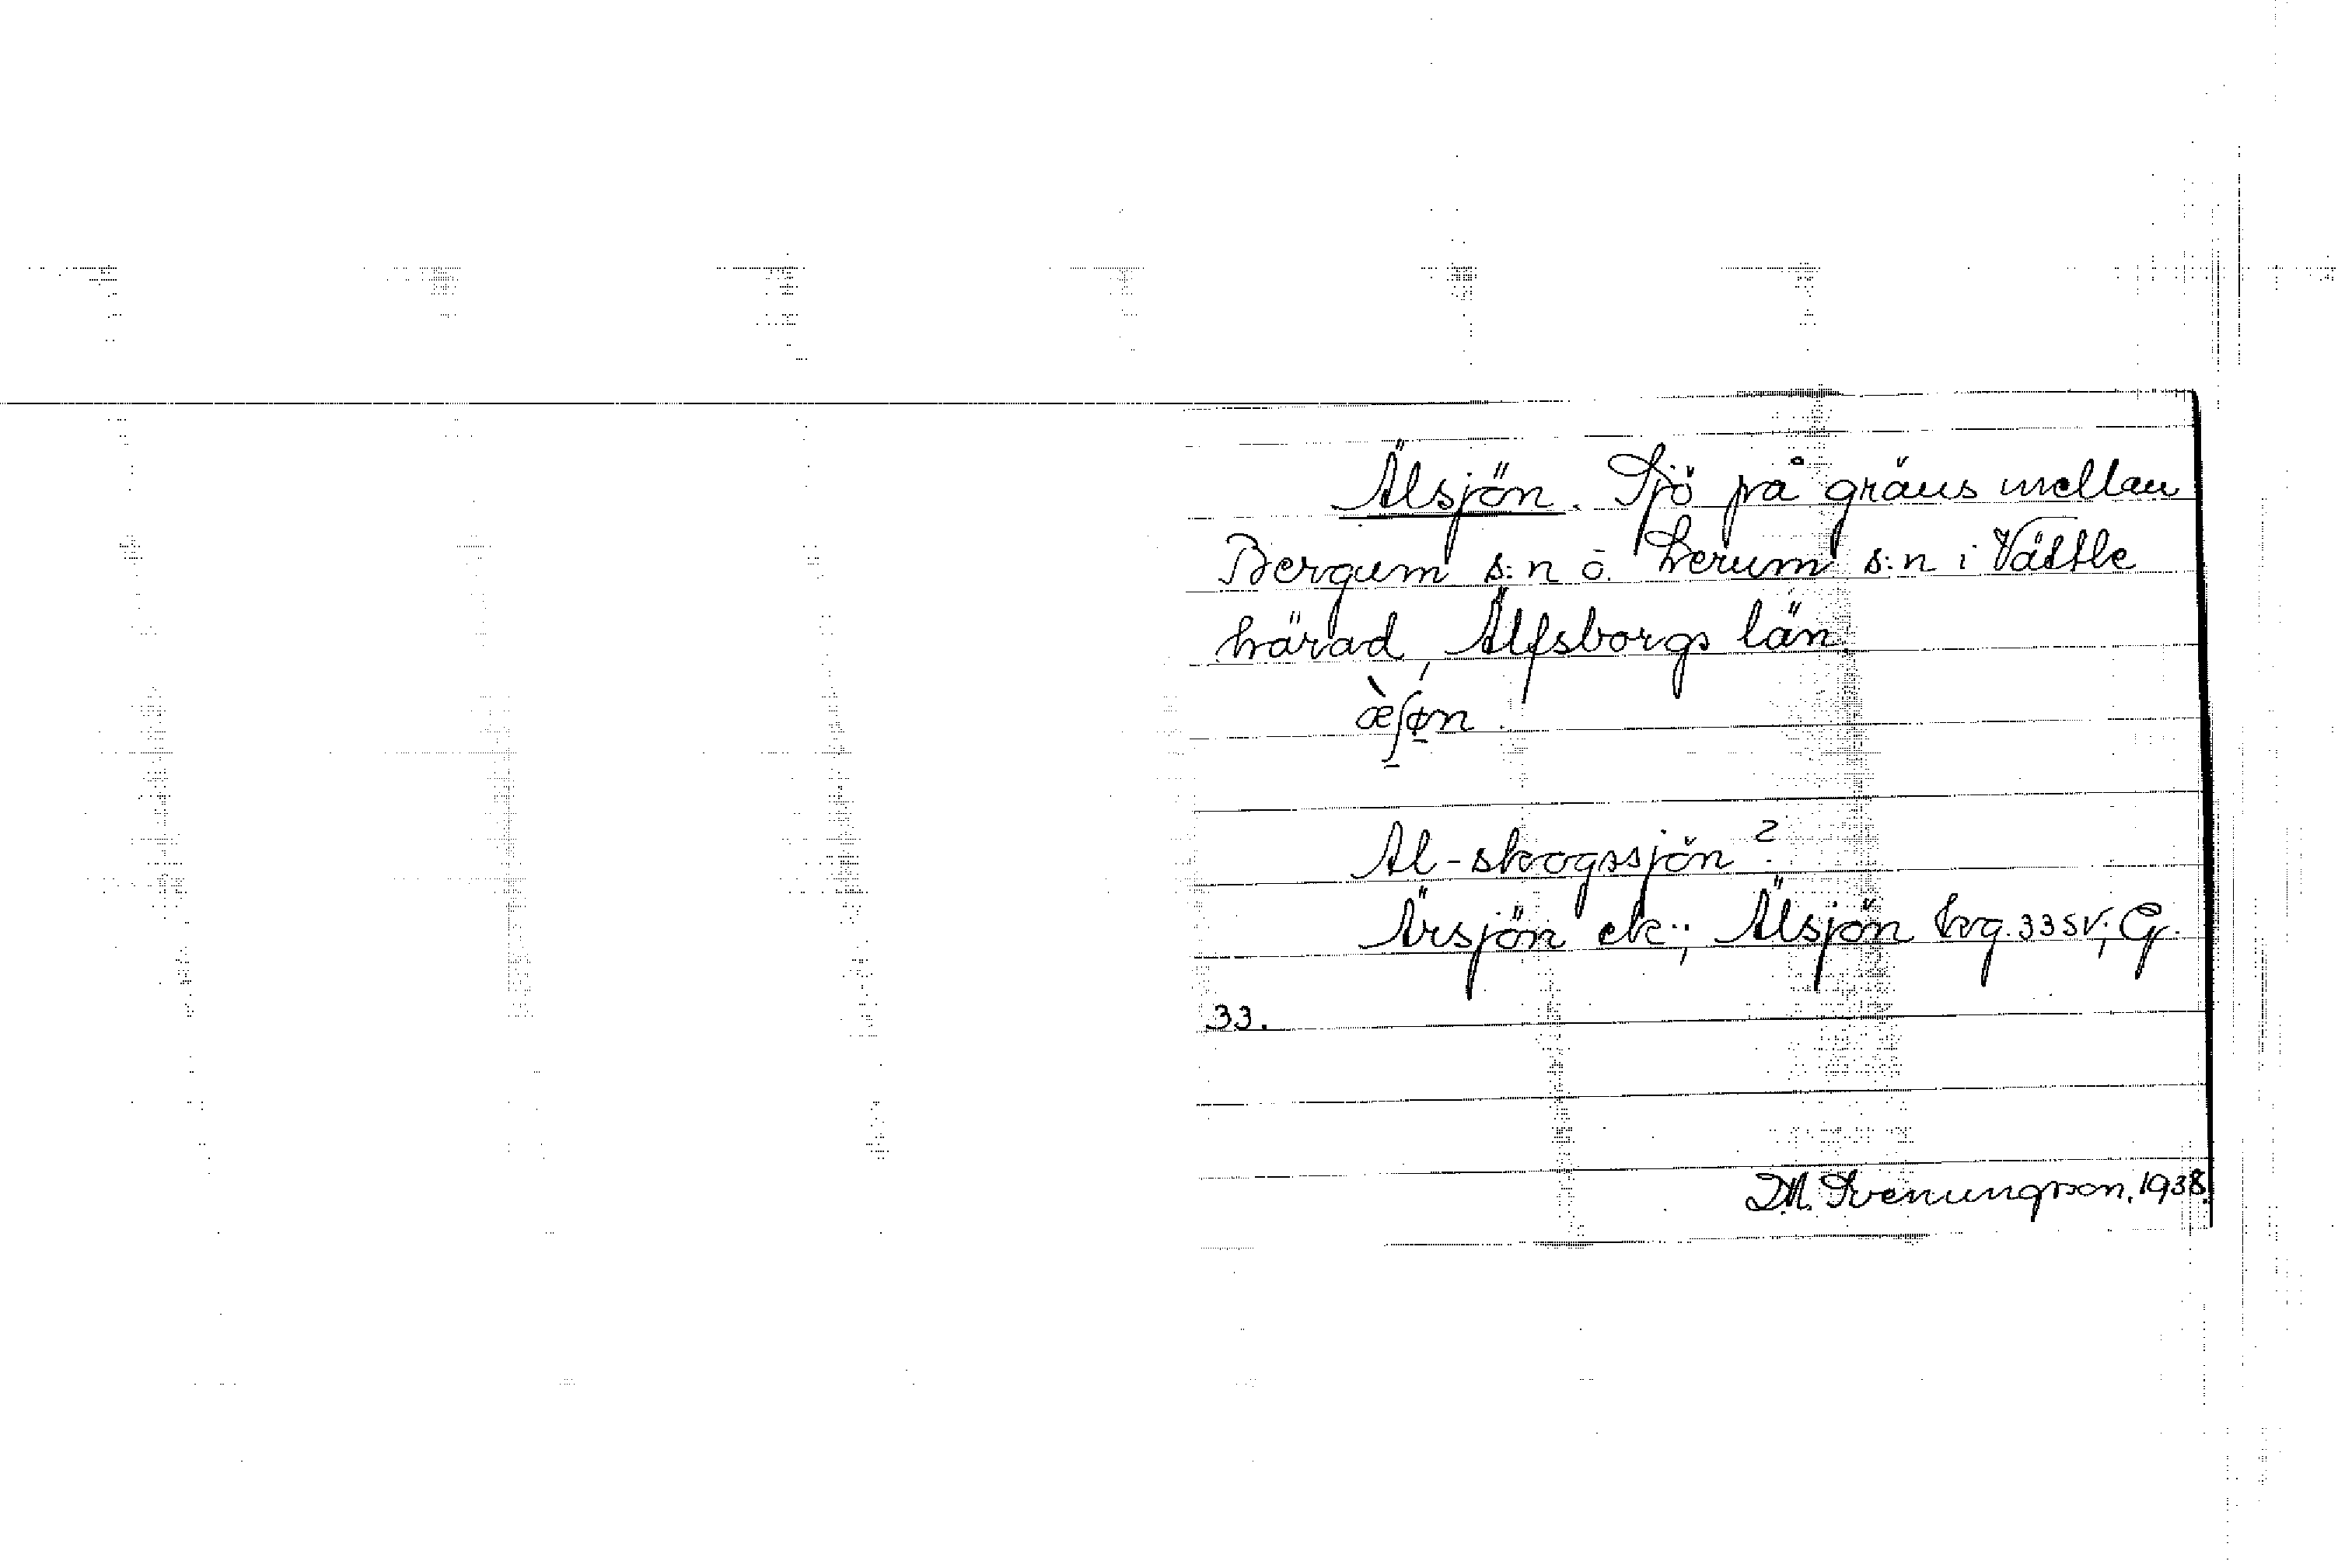 Älsjön. Sjö på gräns mellan
Bergum s:n o. Lerum s:n i Vättle
härad, Älfsborgs län.
æ̀ʃøn
Al-skogssjön?
Ärsjön ek.; Älsjön kvg. 33 SV; G.
33.
M. Svenungsson, 1938.